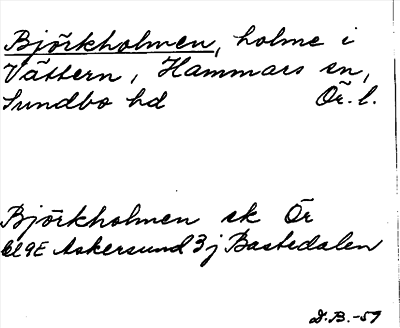 Björkholmen, holme i
Vättern, Hammars sn,
Sundbo hd Ör. l.
Björkholmen sk Ör
9E Askersund 3 j Bastedalen
D.B.-59